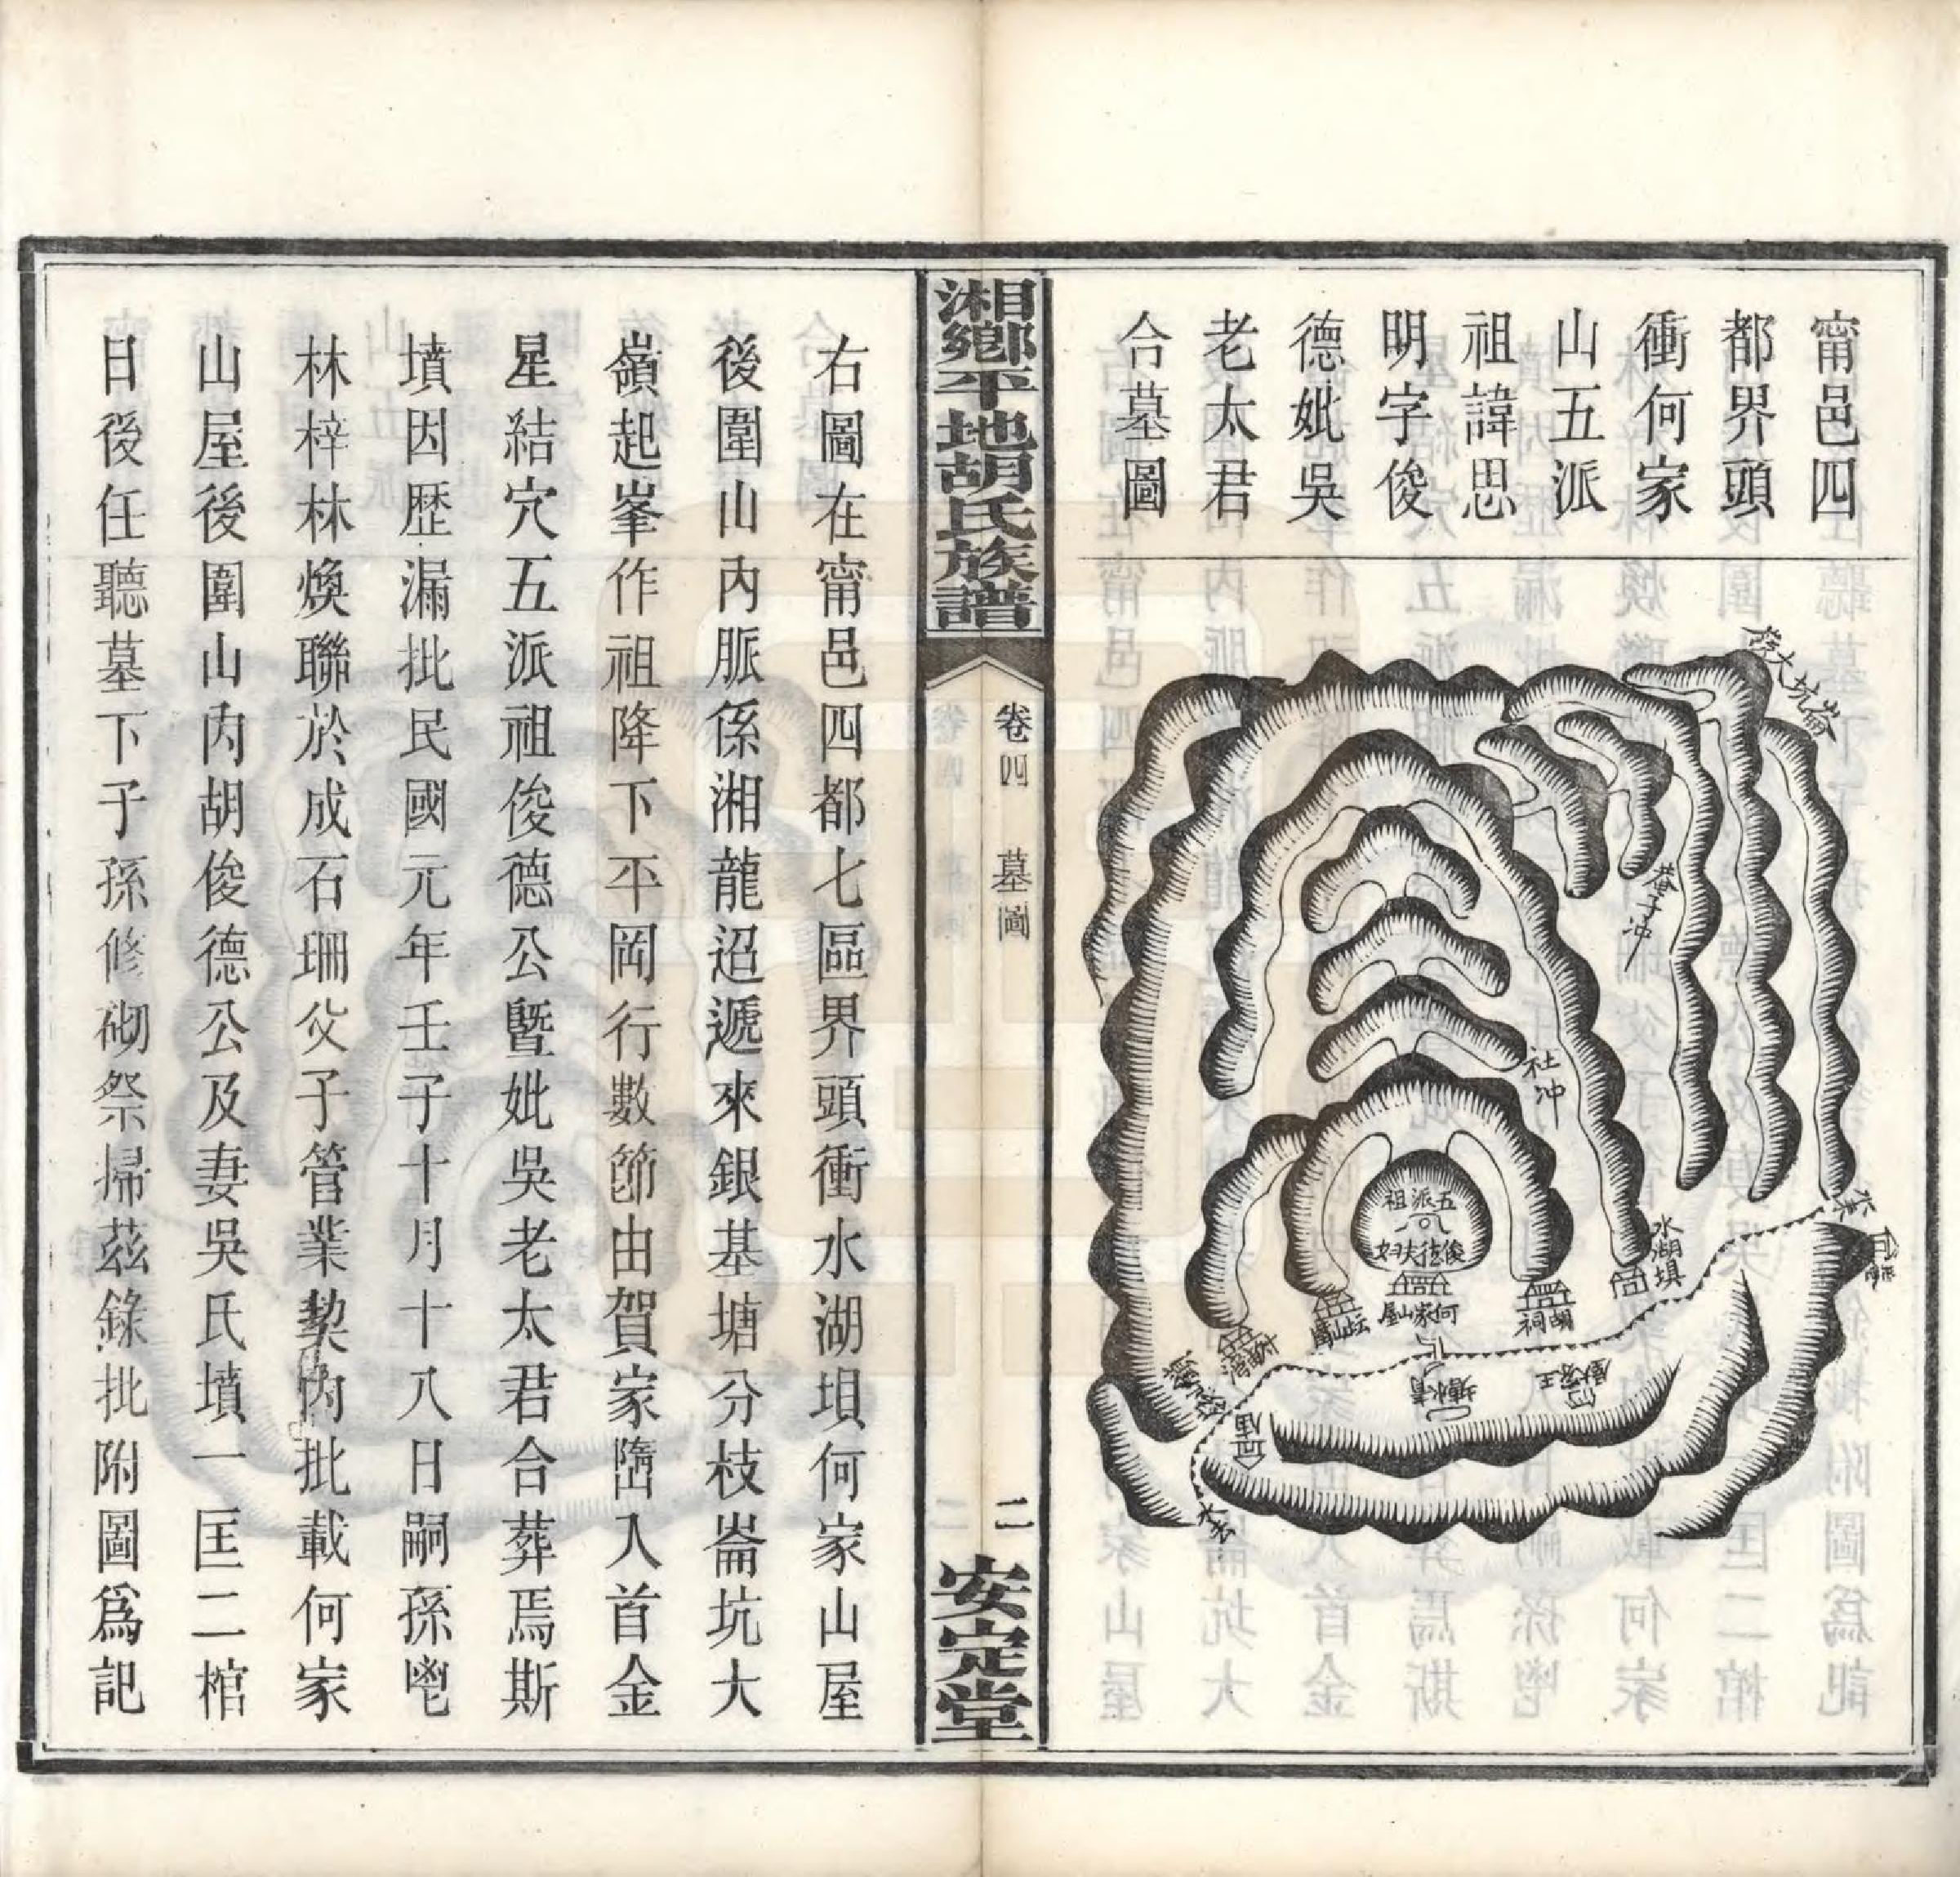 甯邑四
都界頭
衝何家
山五派
祖諱思
明字俊
德妣吳
老太君
合墓圖
社冲
水湖塤
五派祖
何家山屋
胡祠
湘鄉平地胡氏族譜
卷四 墓圖
二
安定堂
右圖在甯邑四都七區界頭衝水湖垻何家山屋
後圍山內脈係湘龍迢遞來銀基塘分枝崙坑大
嶺起峯作祖降下平岡行數節由賀家墮入首金
星結穴五派祖俊德公曁妣吳老太君合葬焉斯
墳因歷漏批民國元年壬子十月十八日嗣孫鬯
林梓林煥聯於成石珊父子管業契內批載何家
山屋後圍山內胡俊德公及妻吳氏墳一匡二棺
日後任聽墓下子孫修砌祭掃茲錄批附圖爲記